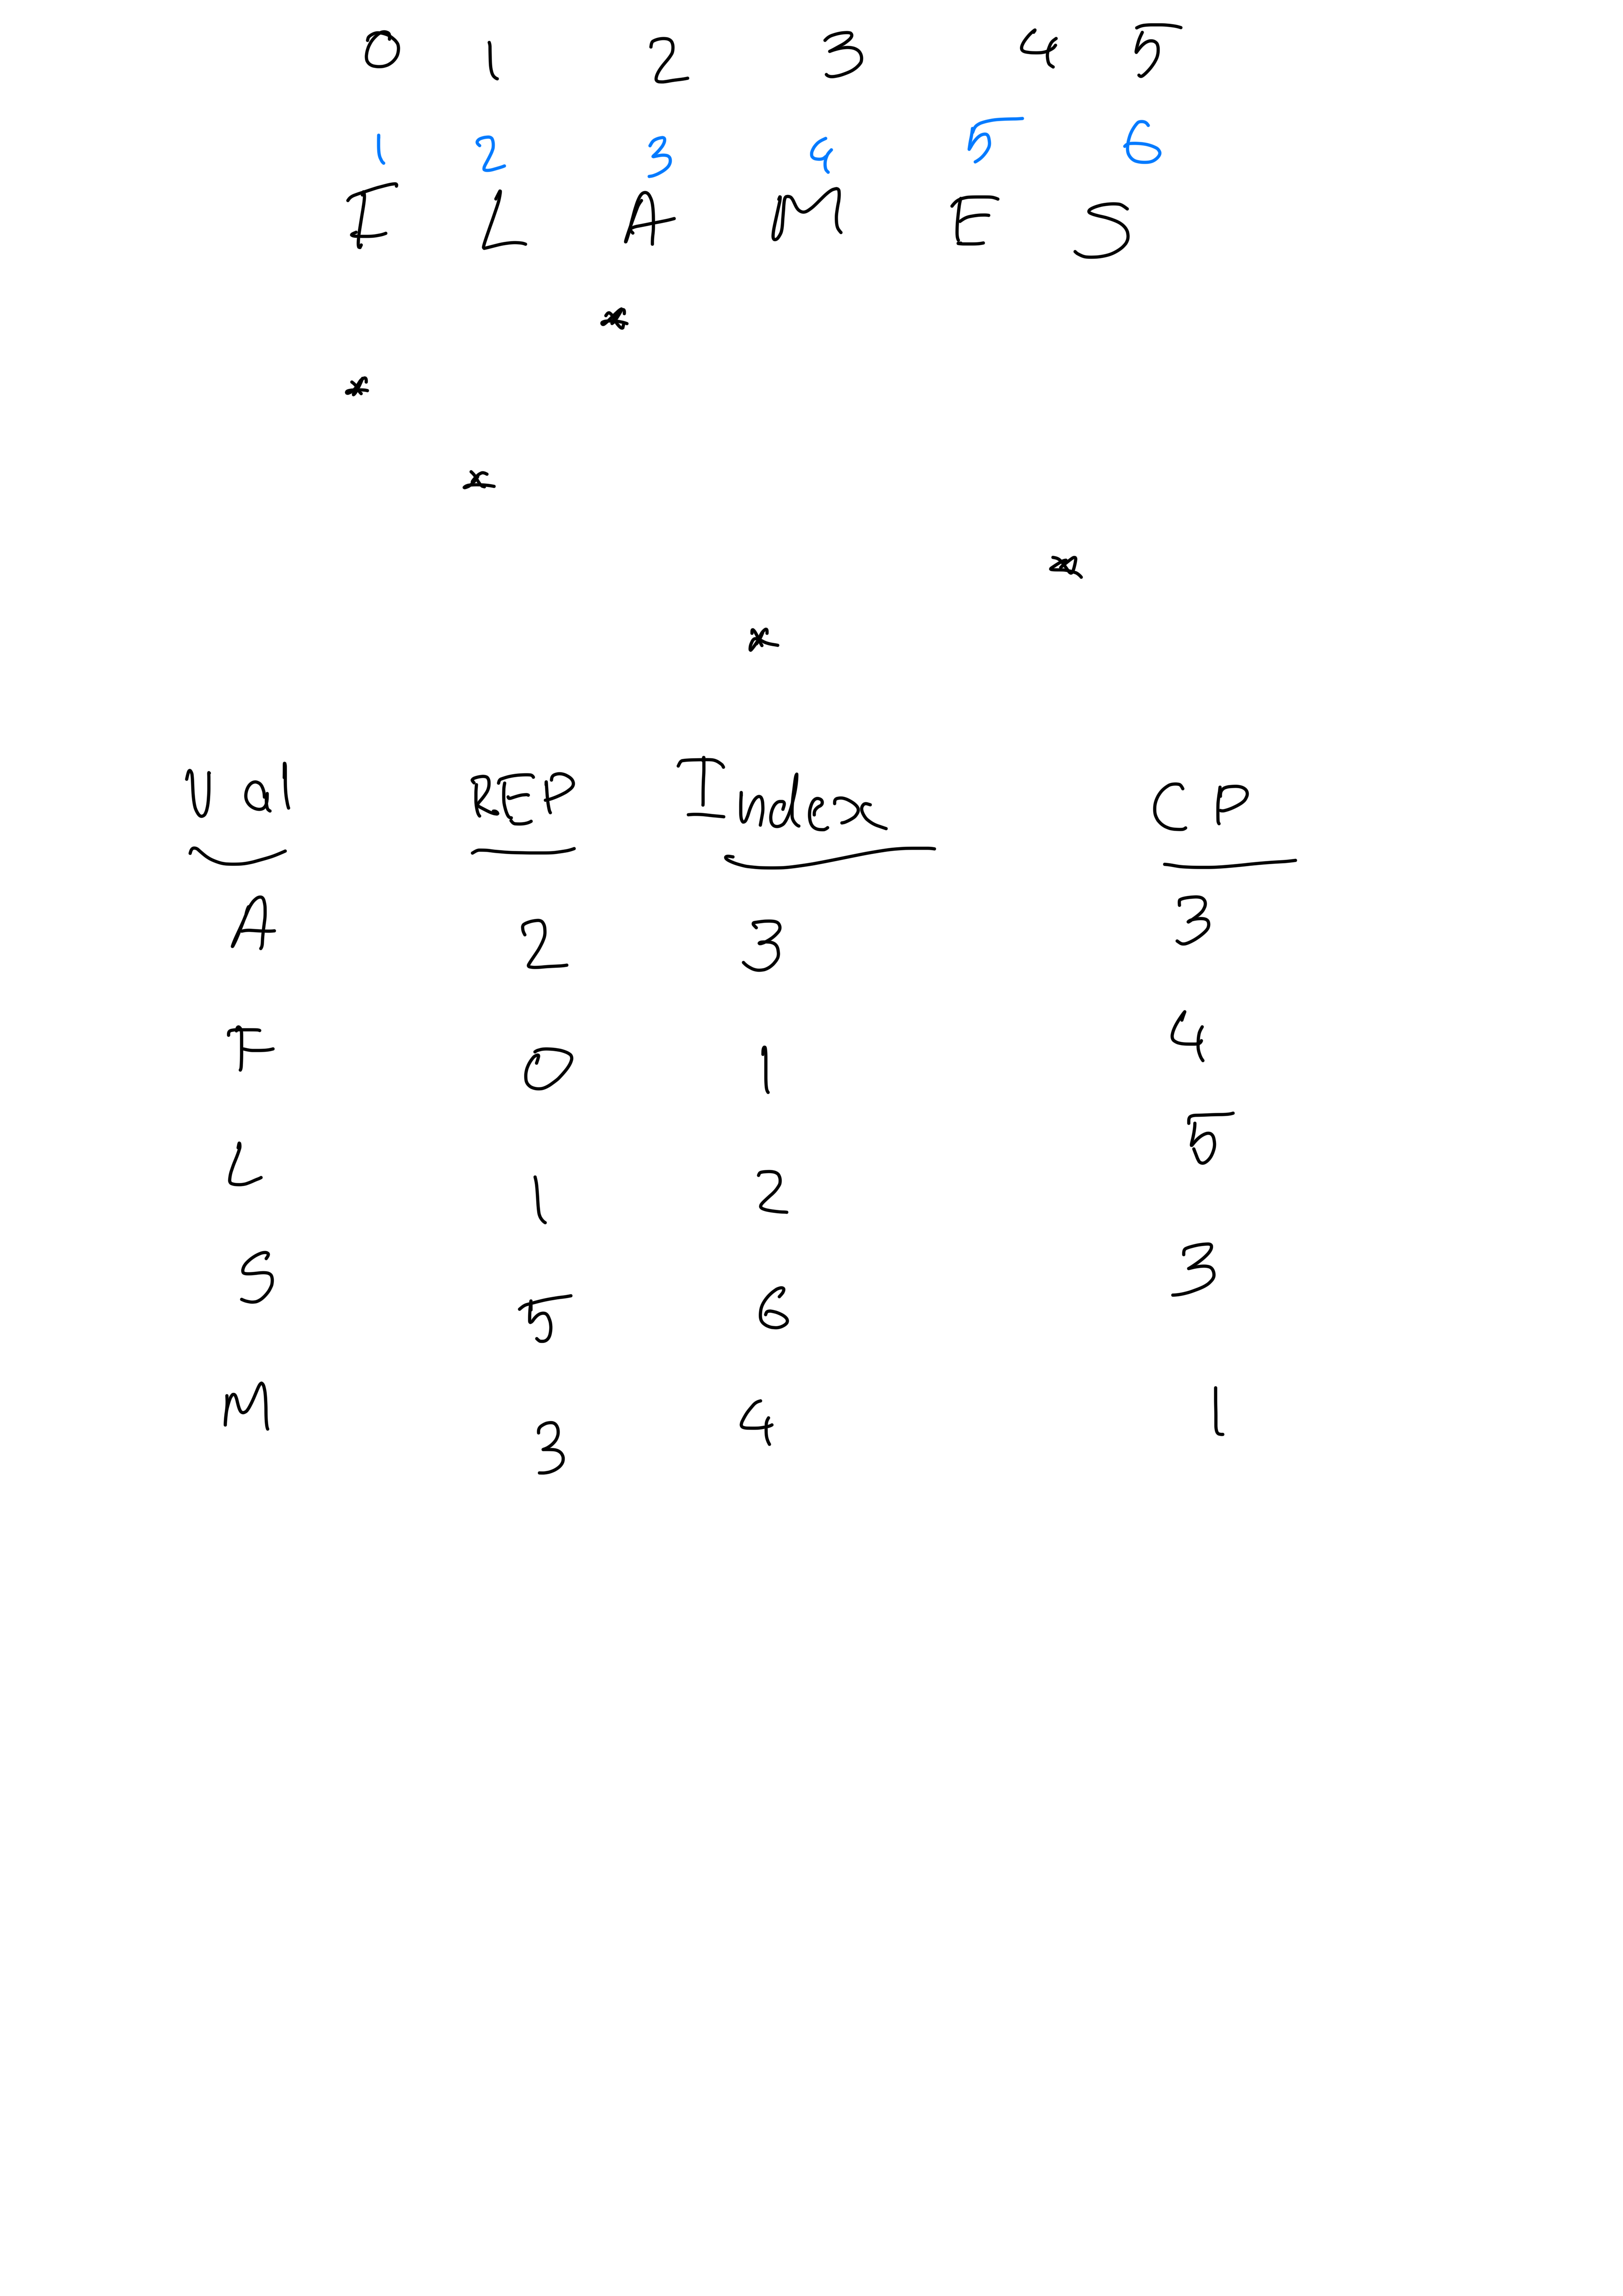 0 1 2 3 4 5
1 2 3 4 5 6
F L A M E S
*
*
*
*
*
Val REP Index CP
A 2 3 3
F 0 1 4
L 1 2 5
S 5 6 3
M 3 4 1